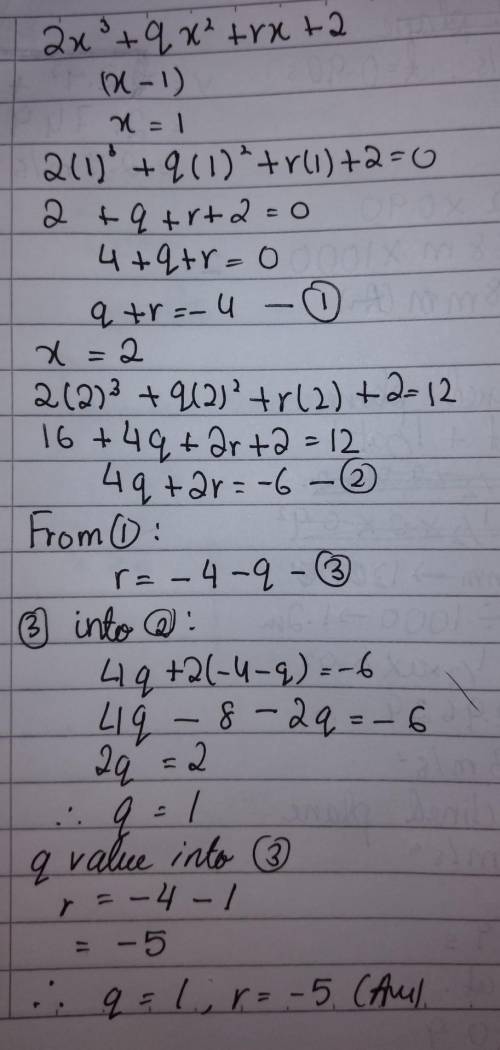 2x³ + qx² + rx + 2
(x - 1)
x = 1
2(1)³ + q(1)² + r(1) + 2 = 0
2 + q + r + 2 = 0
4 + q + r = 0
q + r = - 4 - ①
x = 2
2(2)³ + q(2)² + r(2) + 2 = 12
16 + 4q + 2r + 2 = 12
4q + 2r = -6 - ②
From ① :
r = - 4 - q - ③
③ into ② :
4q + 2(-4 - q) = -6
4q - 8 - 2q = - 6
2q = 2
∴ q = 1
q value into ③
r = - 4 - 1
= -5
∴ q = 1, r = -5 (Ans)